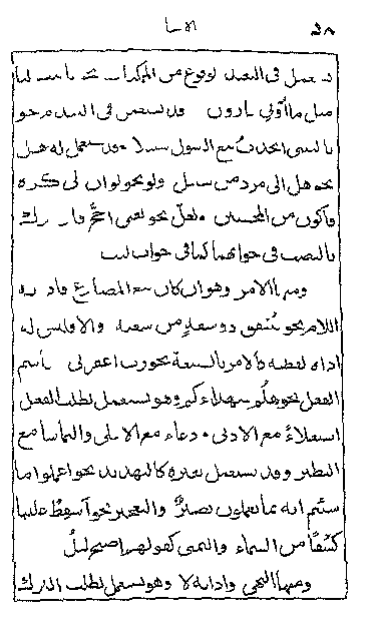 ٥٨ الانشا
تستعمل في البعيد لوقوع من المؤكدات
مثل ما أوتي قارون وقد تستعمل في البعيد نحو
يا ليتني اتخذت مع الرسول سبيلا وقد تستعمل له هل
نحو هل إلى مرد من سبيل ولو نحو لو أن لي كرة
فأكون من المحسنين ولعل نحو لعلي أحج فأزورك
بالنصب في جوابهما كما في جواب ليت
ومنها الامر وهو ان كان من المضارع فاداته
اللام نحو لينفق ذو سعة من سعته والا فليس له
اداة لفظية والامر بالصيغة نحو رب اغفر لي باسم
الفعل نحو هلم شهداءكم وهو يستعمل لطلب الفعل
استعلاءً مع الادنى ودعاء مع الاعلى والتماسا مع
النظير وقد يستعمل لغيره كالتهديد نحو اعملوا ما
شئتم انه بما تعملون بصيرٌ والتعجيز نحو أسقِطْ علينا
كسَفًا من السماء والتمنى كقولهم اصبح ليلُ
ومنها النهى واداته لا وهو يستعمل لطلب الترك